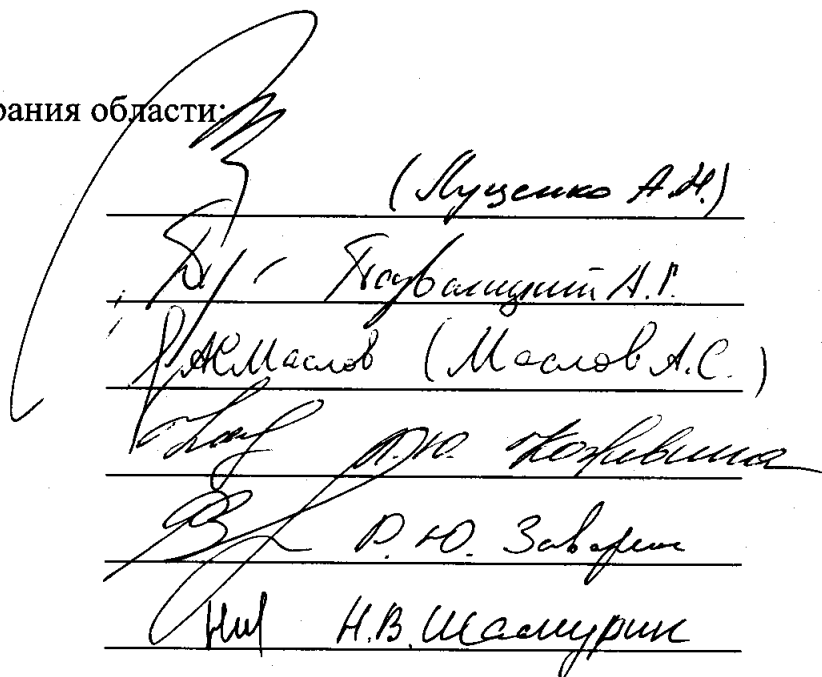 рания области:
(Луценко А.Н.)
Н.Г.
АСМаслов (Маслов А.С.)
Кожевина
Р.Ю. Заварин
Н.В. Шамурин